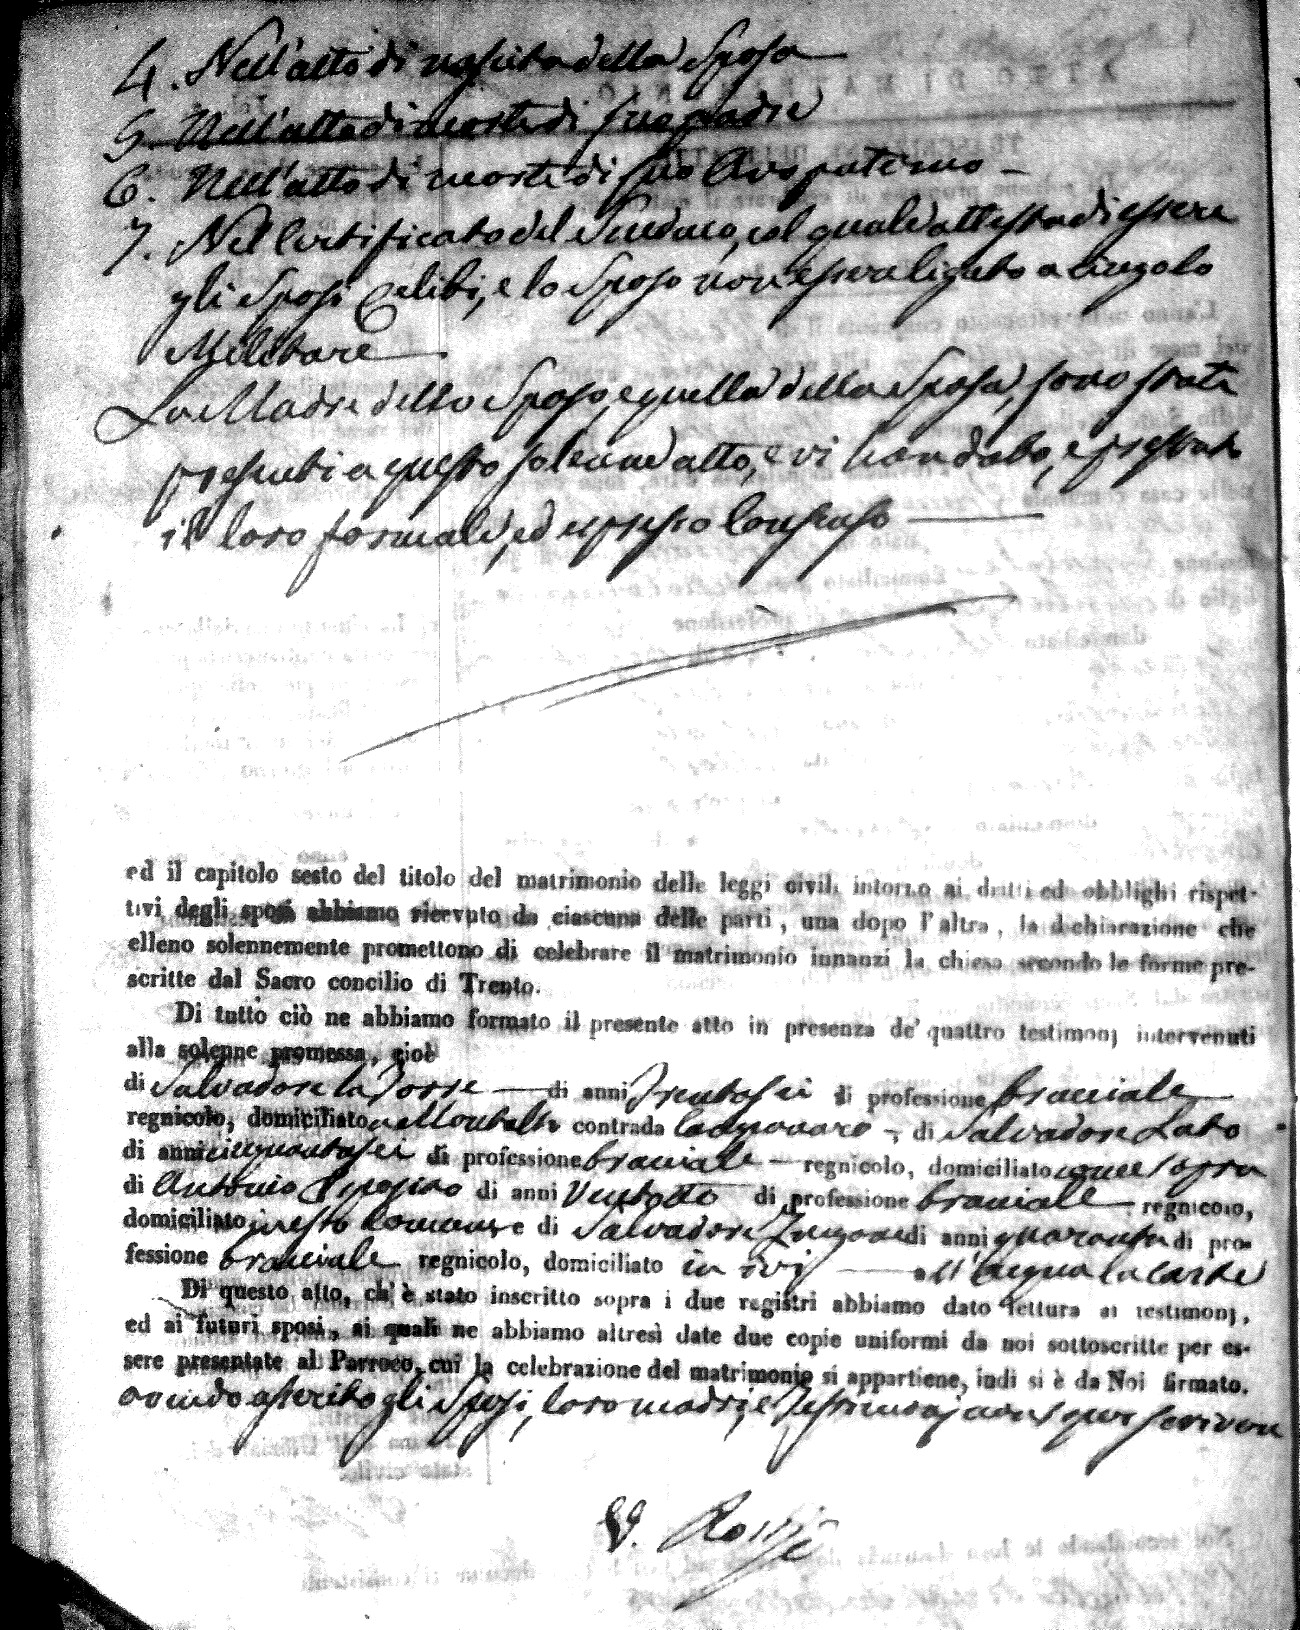 4. Nell'atto di nascita della Sposa
5. Nell'atto di morte di suo padre
6. Nell'atto di morte di suo Avo paterno
7. Nel Certificato del Sindaco, col quale attesta di essere
gli Sposi Celibi, e lo Sposo non essere ligato a vingolo
Militare
La Madre dello Sposo, e quella della Sposa, sono state
presenti a questo solenne atto, e vi han dato, e prestato
il loro formale, ed espresso Consenso
ed il capitolo sesto del titolo del matrimonio delle leggi civili intorno ai dritti ed obblighi rispet-
tivi degli sposi abbiamo ricevuto da ciascuna delle parti, una dopo l'altra, la dichiarazione che
elleno solennemente promettono di celebrare il matrimonio innanzi la chiesa secondo le forme pre-
scritte dal Sacro concilio di Trento.
Di tutto ciò ne abbiamo formato il presente atto in presenza de' quattro testimonj intervenuti
alla solenne promessa, cioè
di Salvadore la Torre di anni Trentasei di professione bracciale
regnicolo, domiciliato a Montalto contrada di Salvadore Lato
di anni cinquantasei di professione bracciale regnicolo, domiciliato come sopra
di Antonio di anni Ventotto di professione bracciale regnicolo,
domiciliato questo Comune e di Salvadore di anni quaranta di pro-
fessione bracciale regnicolo, domiciliato in ivi
Di questo atto, ch' è stato inscritto sopra i due registri abbiamo dato lettura ai testimonj,
ed ai futuri sposi, ai quali ne abbiamo altresì date due copie uniformi da noi sottoscritte per es-
sere presentate al Parroco, cui la celebrazione del matrimonio si appartiene, indi si è da Noi firmato.
avendo asserito gli Sposi, loro madri, e Testimonj non saper scrivere
Rossi